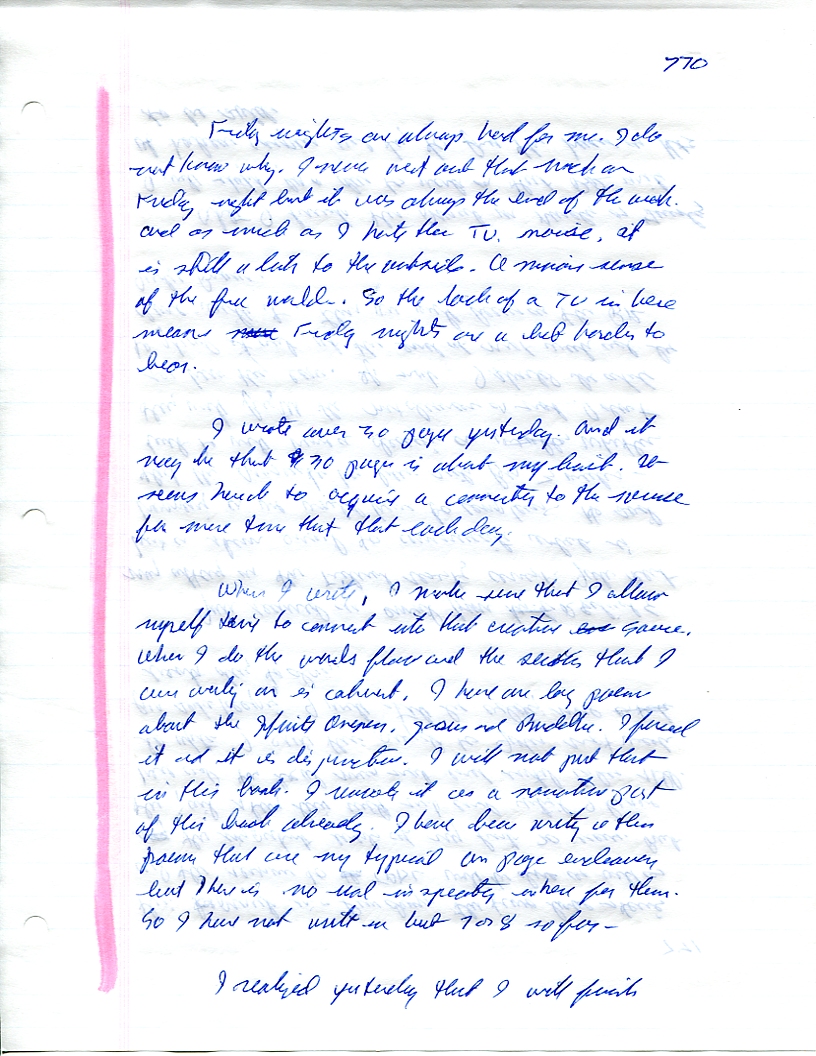 770
Friday nights are always hard for me. I do
not know why. I never went out that much on
Friday night but it was always the end of the week.
and as much as I hate the TV. noise, it
is still a link to the outside. A minor sense
of the free world. So the lack of a TV in here
means Friday nights are a bit harder to
bear.
I wrote over 30 pages yesterday. And it
may be that 30 pages is about my limit. It
seems hard to acquire a connection to the
for more time that that each day.
When I write, I make sure that I allow
myself time to connect into that creative source.
When I do the words flow and the that I
am writing on is coherent. I have one long poem
about the Infinite Oneness, Jesus and Buddha. I forced
it and it is disjunctive. I will not put that
in this book. I it as a narrative part
of this book already. I have been writing other
poems that are my typical one page endeavors
but there is no real in here for them.
So I have not written but 7 or 8 so far -
I realized yesterday that I will finish